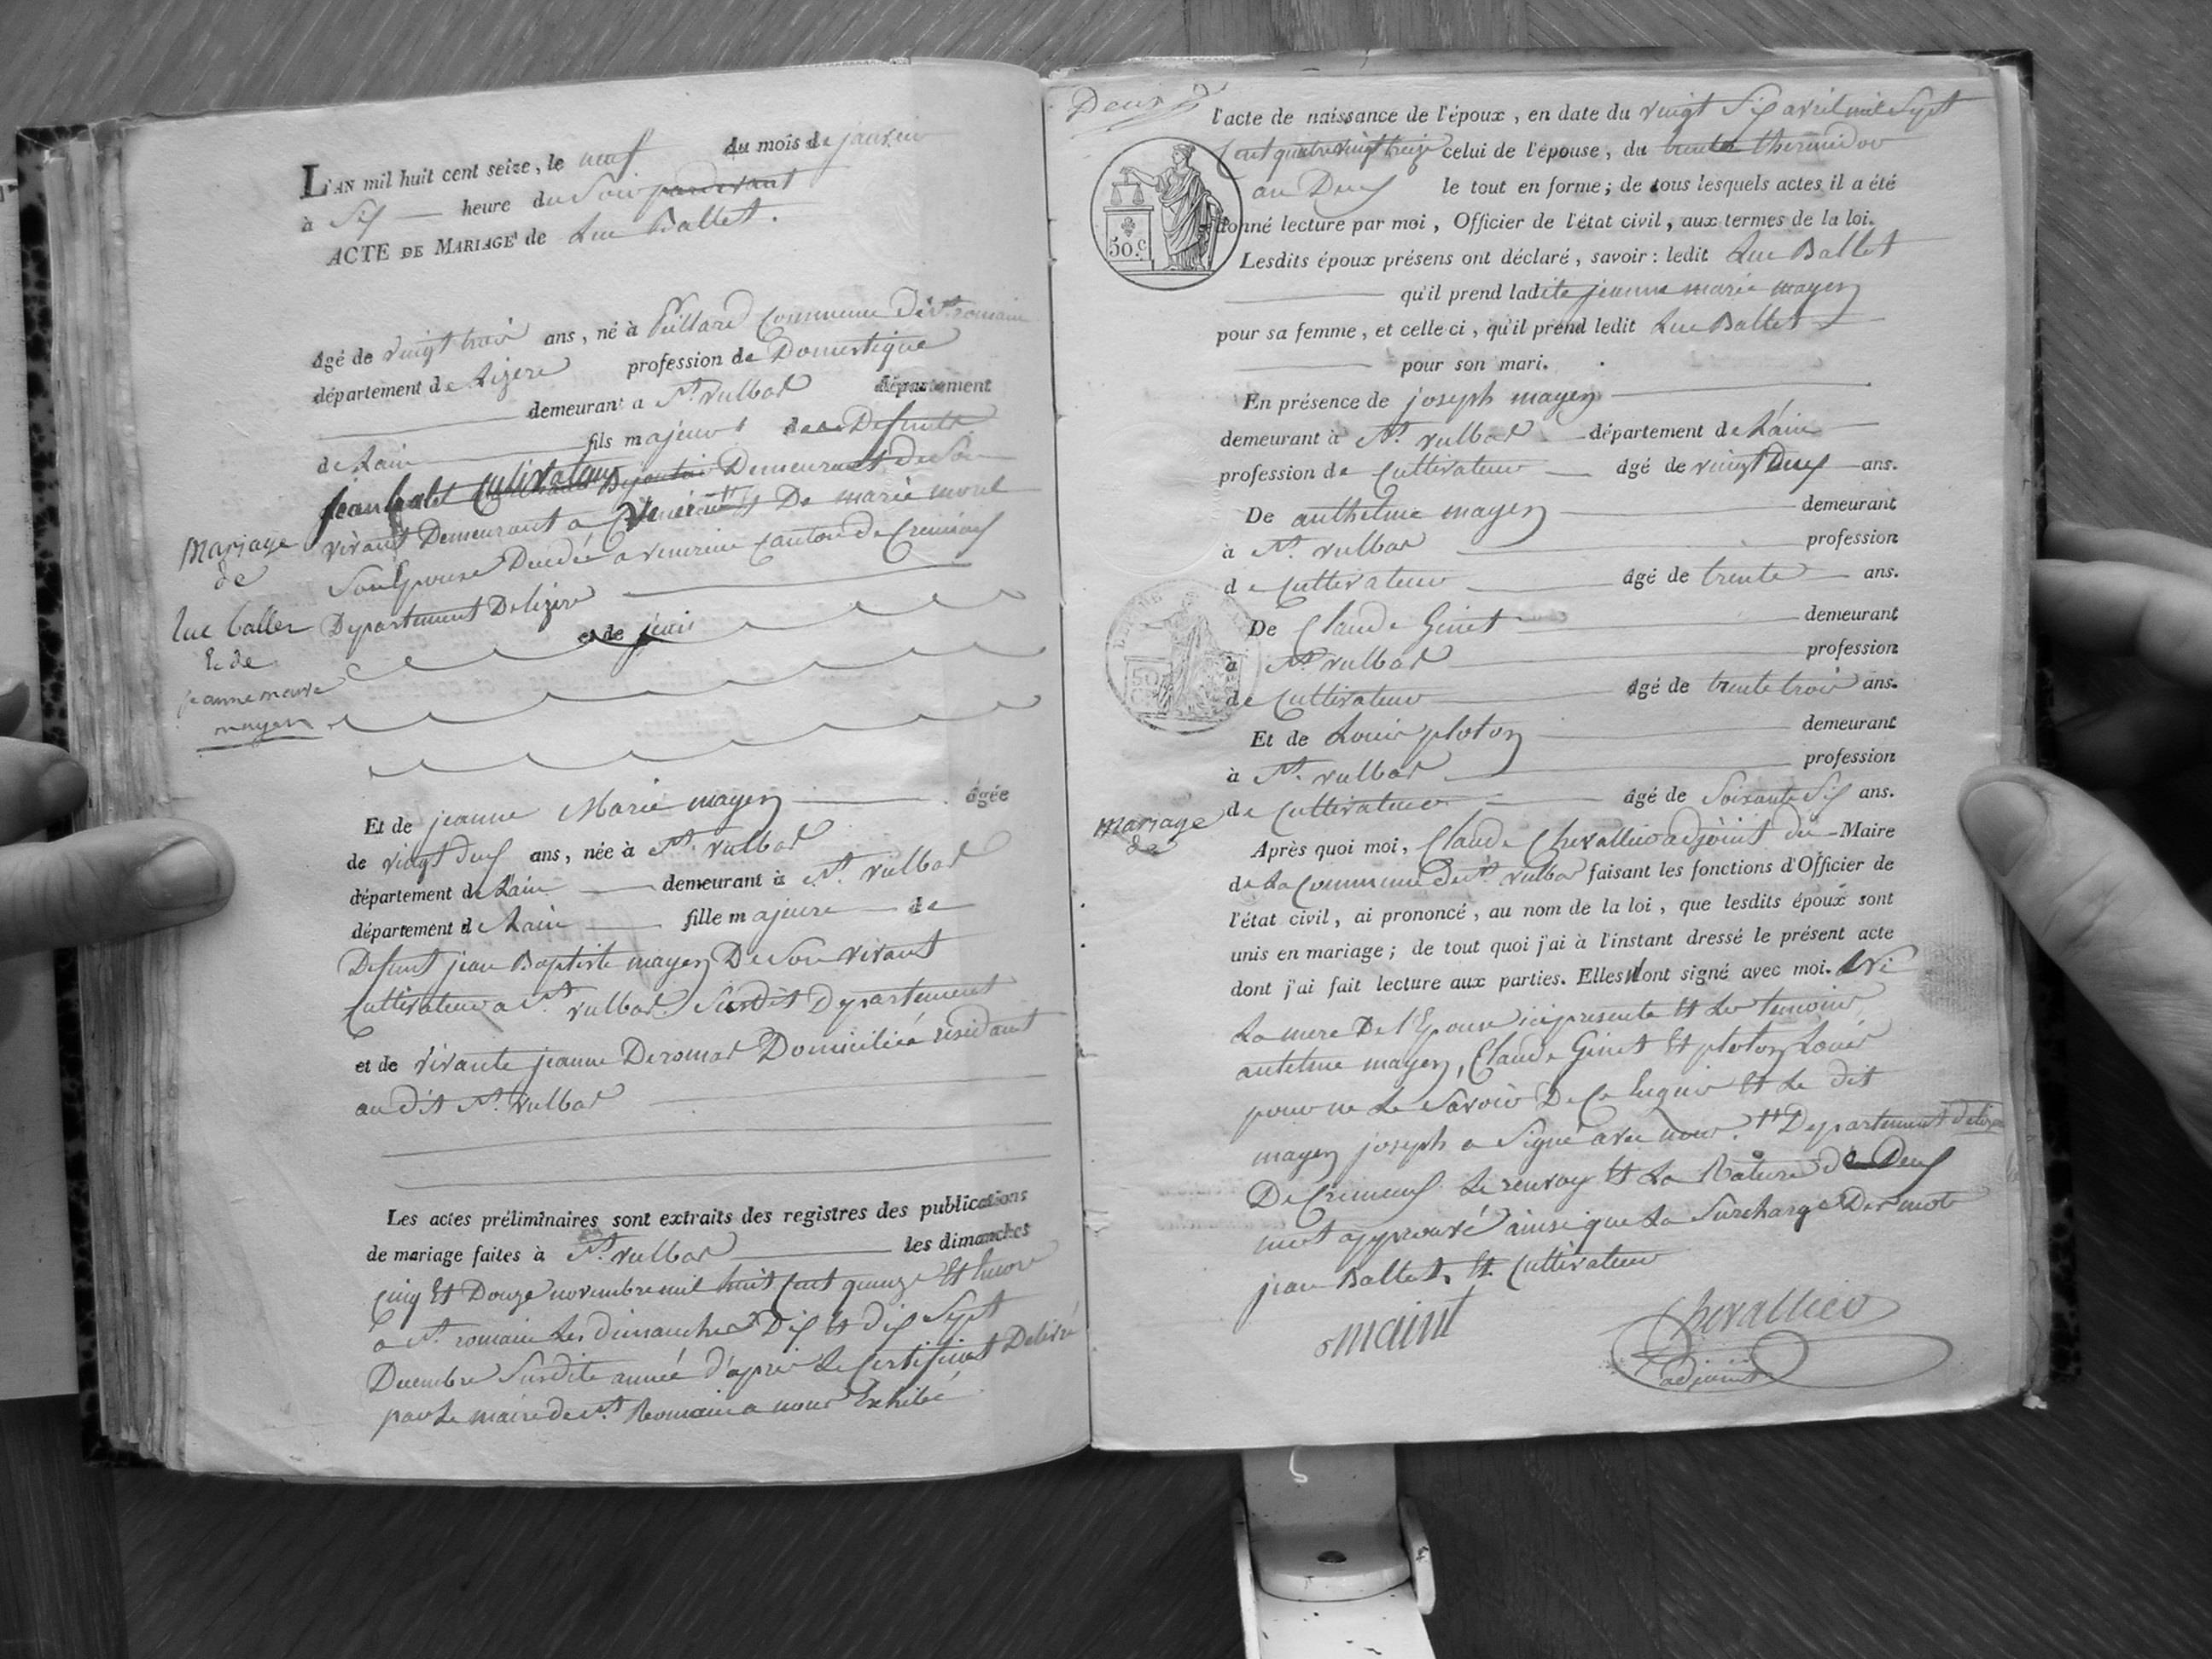 L'AN mil huit cent seize, le neuf du mois de janvier
à Six heure du Soir pardevant
ACTE DE MARIAGE de Luc Ballet.
âgé de vingt trois ans, né à Commune de St. romain
département de Lizere profession de Domestique
demeurant a St. Vulbas département
de Lain fils majeur de Defunt
jean balet Cultivateur Demeurant de Son
vivant Demeurant a Et De marie morel
Son Epouse Dècèdée a venerieu Canton de Cremieux
Departement De lizere
et de jean
Mariage
de
luc ballet
& de
jeanne marie
mayen
Et de jeanne Marie mayen âgée
de vingt deux ans, née à St. Vulbas
département de Lain demeurant à St. Vulbas
département d Lain fille majeure de
Defunt jean Baptiste mayen De Son vivant
Cultivateur a St. Vulbas Susdit Departement
et de vivante jeanne Deromas Domiciliée residant
au dit St. Vulbas
Les actes préliminaires sont extraits des registres des publications
de mariage faites à St. Vulbas les dimanches
Cinq Et Douze novembre mil huit Cent quinze Et Encore
a St. romain Les dimanches Dix Et dix Sept
Decembre Susdite année d'apres Le Certificat Delivré
par Le maire de St. Romain a nous Exhibé
Deux
l'acte de naissance de l'époux, en date du vingt Six avril mil Sept
Cent quatre vingt treize celui de l'épouse, du trente thermidor
an Deux le tout en forme; de tous lesquels actes il a été
donné lecture par moi, Officier de l'état civil, aux termes de la loi.
50.c
Lesdits époux présens ont déclaré, savoir: ledit Luc Ballet
qu'il prend ladite jeanne marie mayen
pour sa femme, et celle-ci, qu'il prend ledit Luc Ballet
pour son mari.
En présence de joseph mayen
demeurant à St. Vulbas département de Lain
profession de Cultivateur âgé de vingt Deux ans.
De anthelme mayen demeurant
à St. Vulbas profession
de Cultivateur âgé de trente ans.
De Claude Ginet demeurant
à St. Vulbas profession
50
de Cultivateur âgé de trente trois ans.
Et de Louis ploton demeurant
à St. Vulbas profession
de Cultivateur âgé de Soixante Six ans.
Mariage
de
Après quoi moi, Claude Chevallier adjoint du Maire
de La Commune De St. Vulbas faisant les fonctions d'Officier de
l'état civil, ai prononcé, au nom de la loi, que lesdits époux sont
unis en mariage; de tout quoi j'ai à l'instant dressé le présent acte
dont j'ai fait lecture aux parties. Elles N'ont signé avec moi. Ni
La mere De l'Epouse ici presente Et Les temoins
antelme mayen, Claude Ginet Et ploton Louis
pour ne Le Savoir De Ce Enquis Et Le dit
mayen joseph a Signé avec nous. Departement de lizere
De Cremieux Le renvoy Et La Rature de Deux
mot approuvé ainsi que La Surcharge Des mots
jean Ballet Et Cultivateur
Chevallier
adjoint